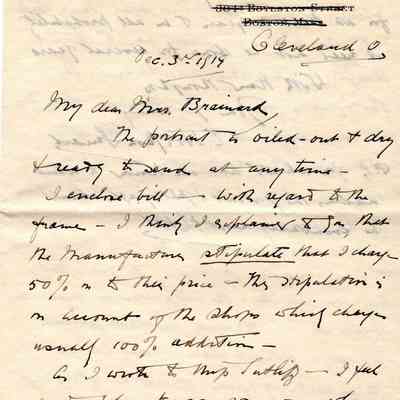 304 Boylston Street
Boston, Mass
Cleveland O.
Dec. 3rd 1914
My dear Mrs. Brainard
The portrait is oiled-out & dry
& ready to send at any time -
I enclose bill - with regard to the
frame - I think I explained to you that
the Manufacturers stipulate that I charge
50% on to their price - this stipulation is
on account of the shops which charge
usually 100% addition -
As I wrote to Miss Sutliff - I feel